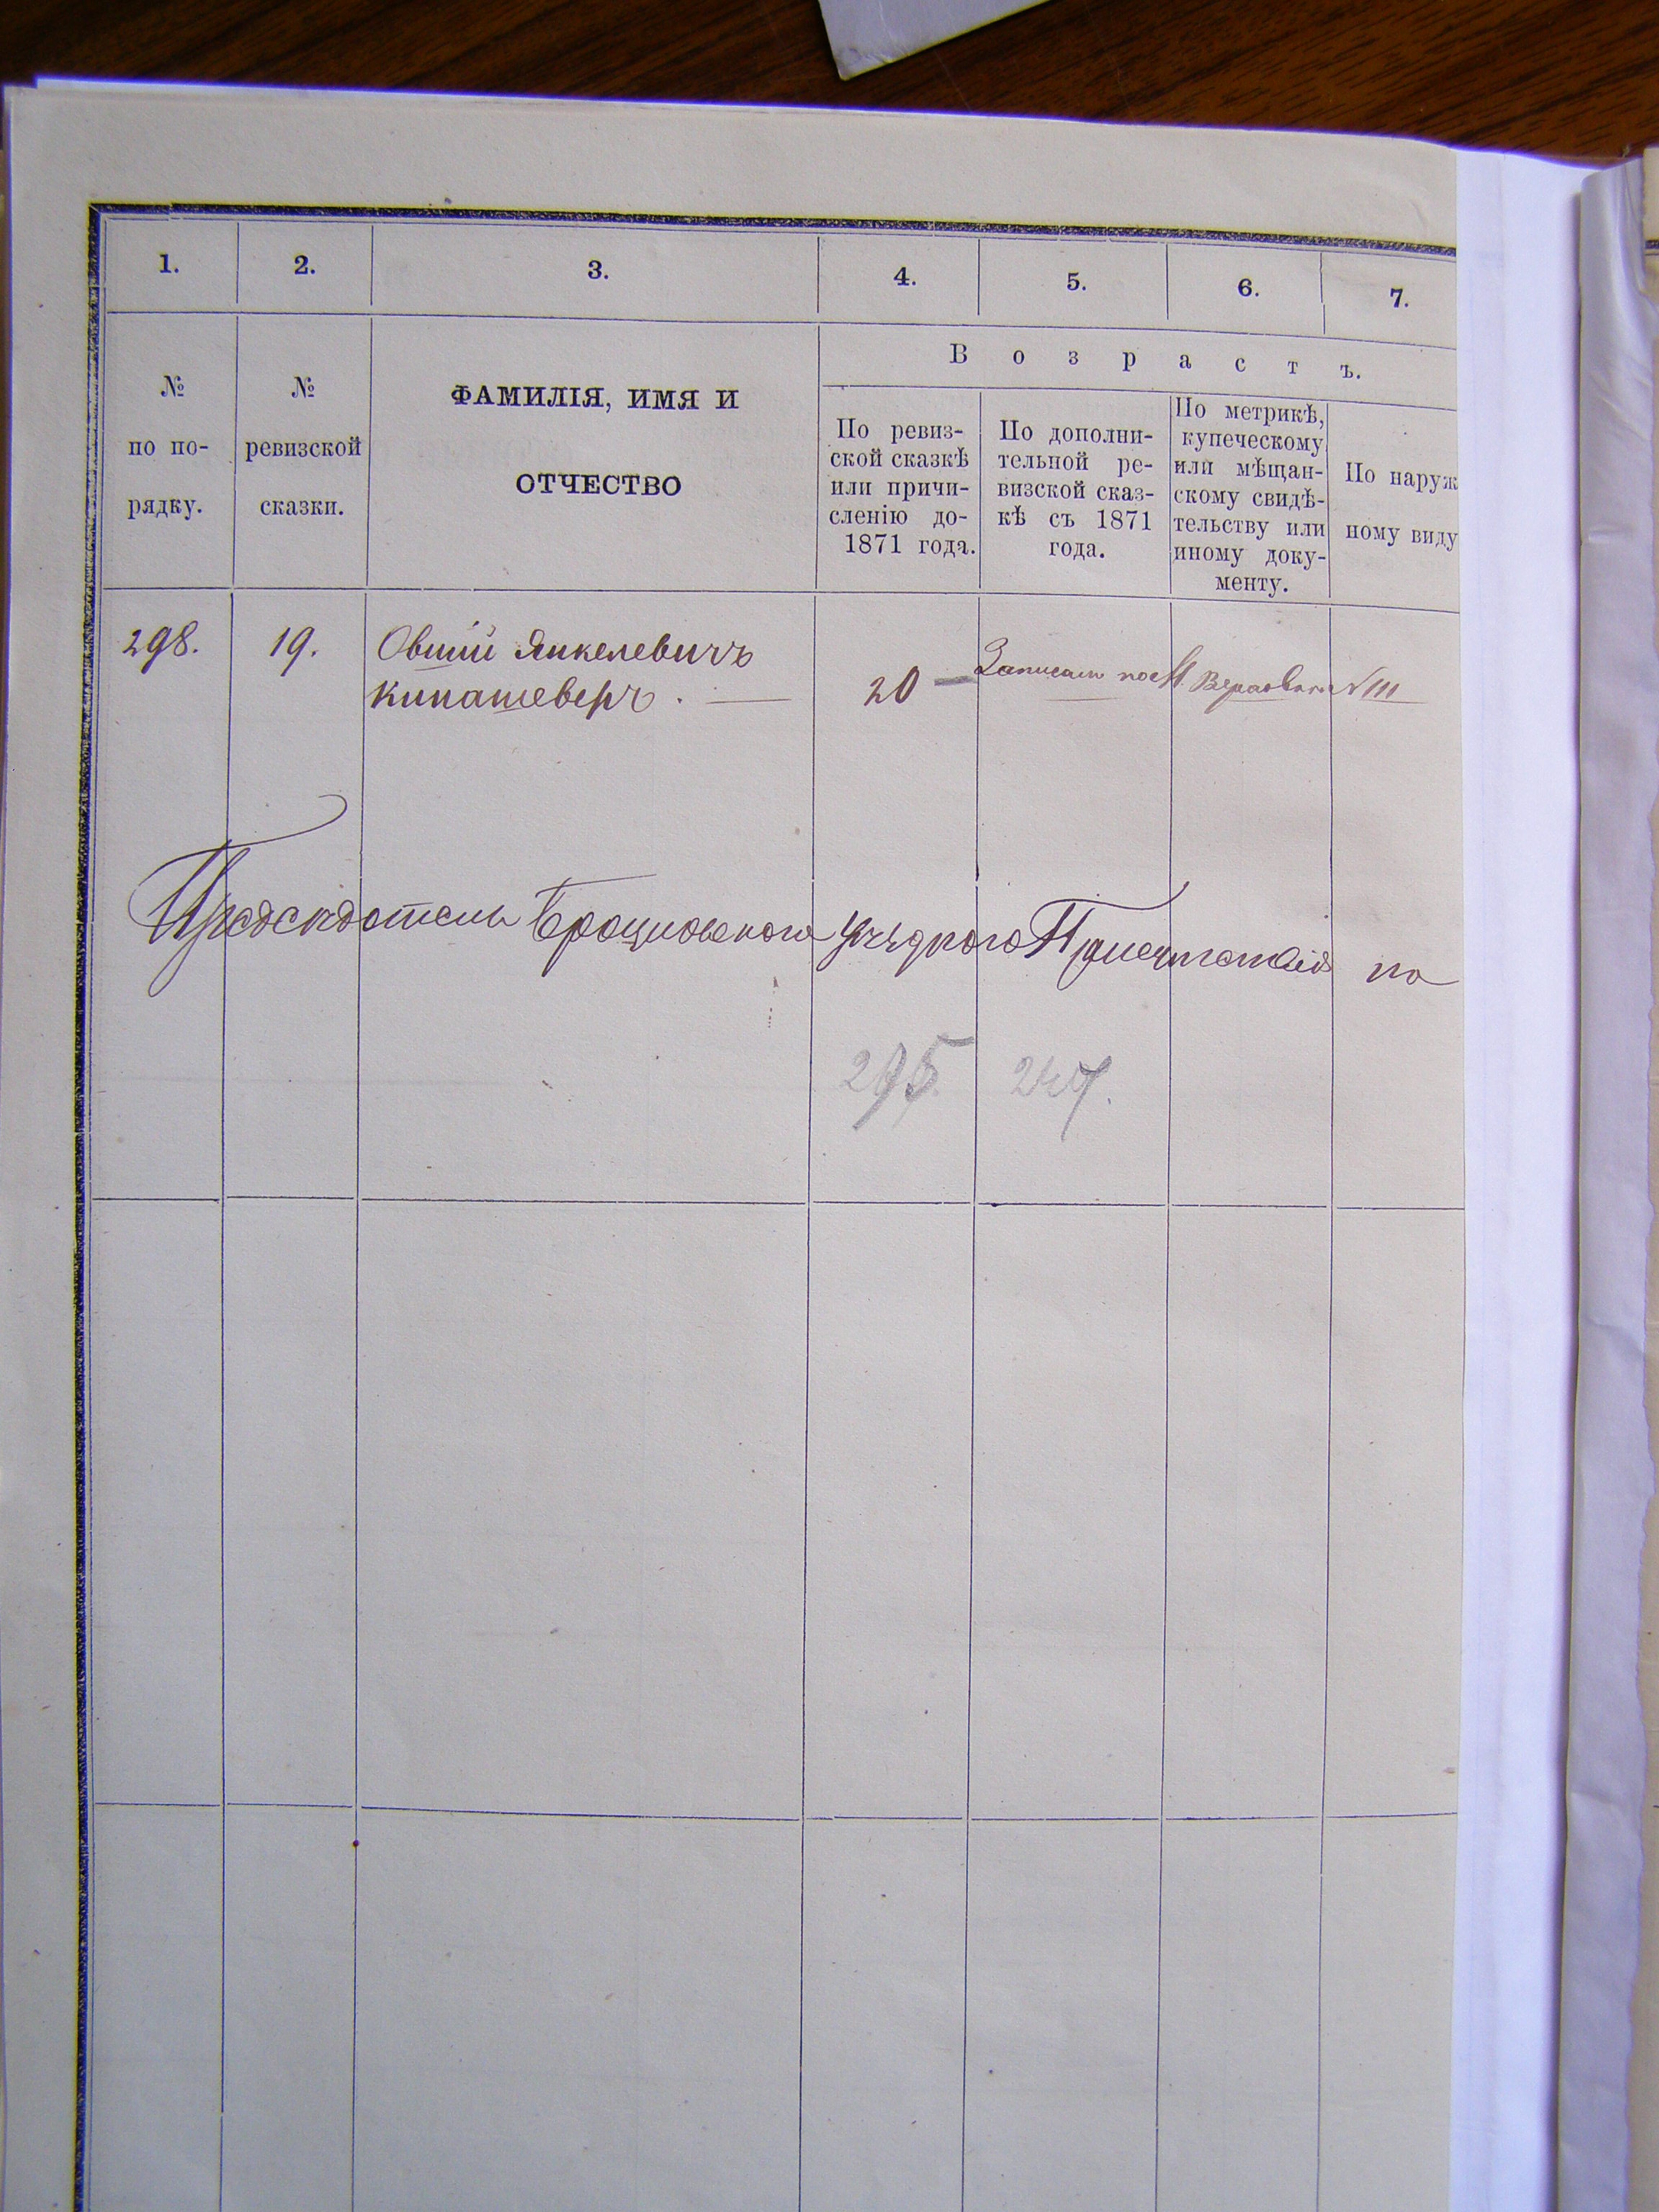 1. 2. 3. 4. 5. 6. 7.
№ по по- рядку.
№ ревизской сказки.
ФАМИЛІЯ, ИМЯ И
ОТЧЕСТВО
Возрастъ.
По ревиз-
ской сказкѣ
или причи-
сленію до-
1871 года.
По дополни-
тельной ре-
визской сказ-
кѣ съ 1871
года.
По метрикѣ,
купеческому
или мѣщан-
скому свидѣ-
тельству или
иному доку-
менту.
По наруж
ному виду
298. 19. Овшій Янкелевичъ
20 Записанъ по М. №
Предсѣдатель Брацлавскаго Уѣзднаго Присутствія по
295 247.